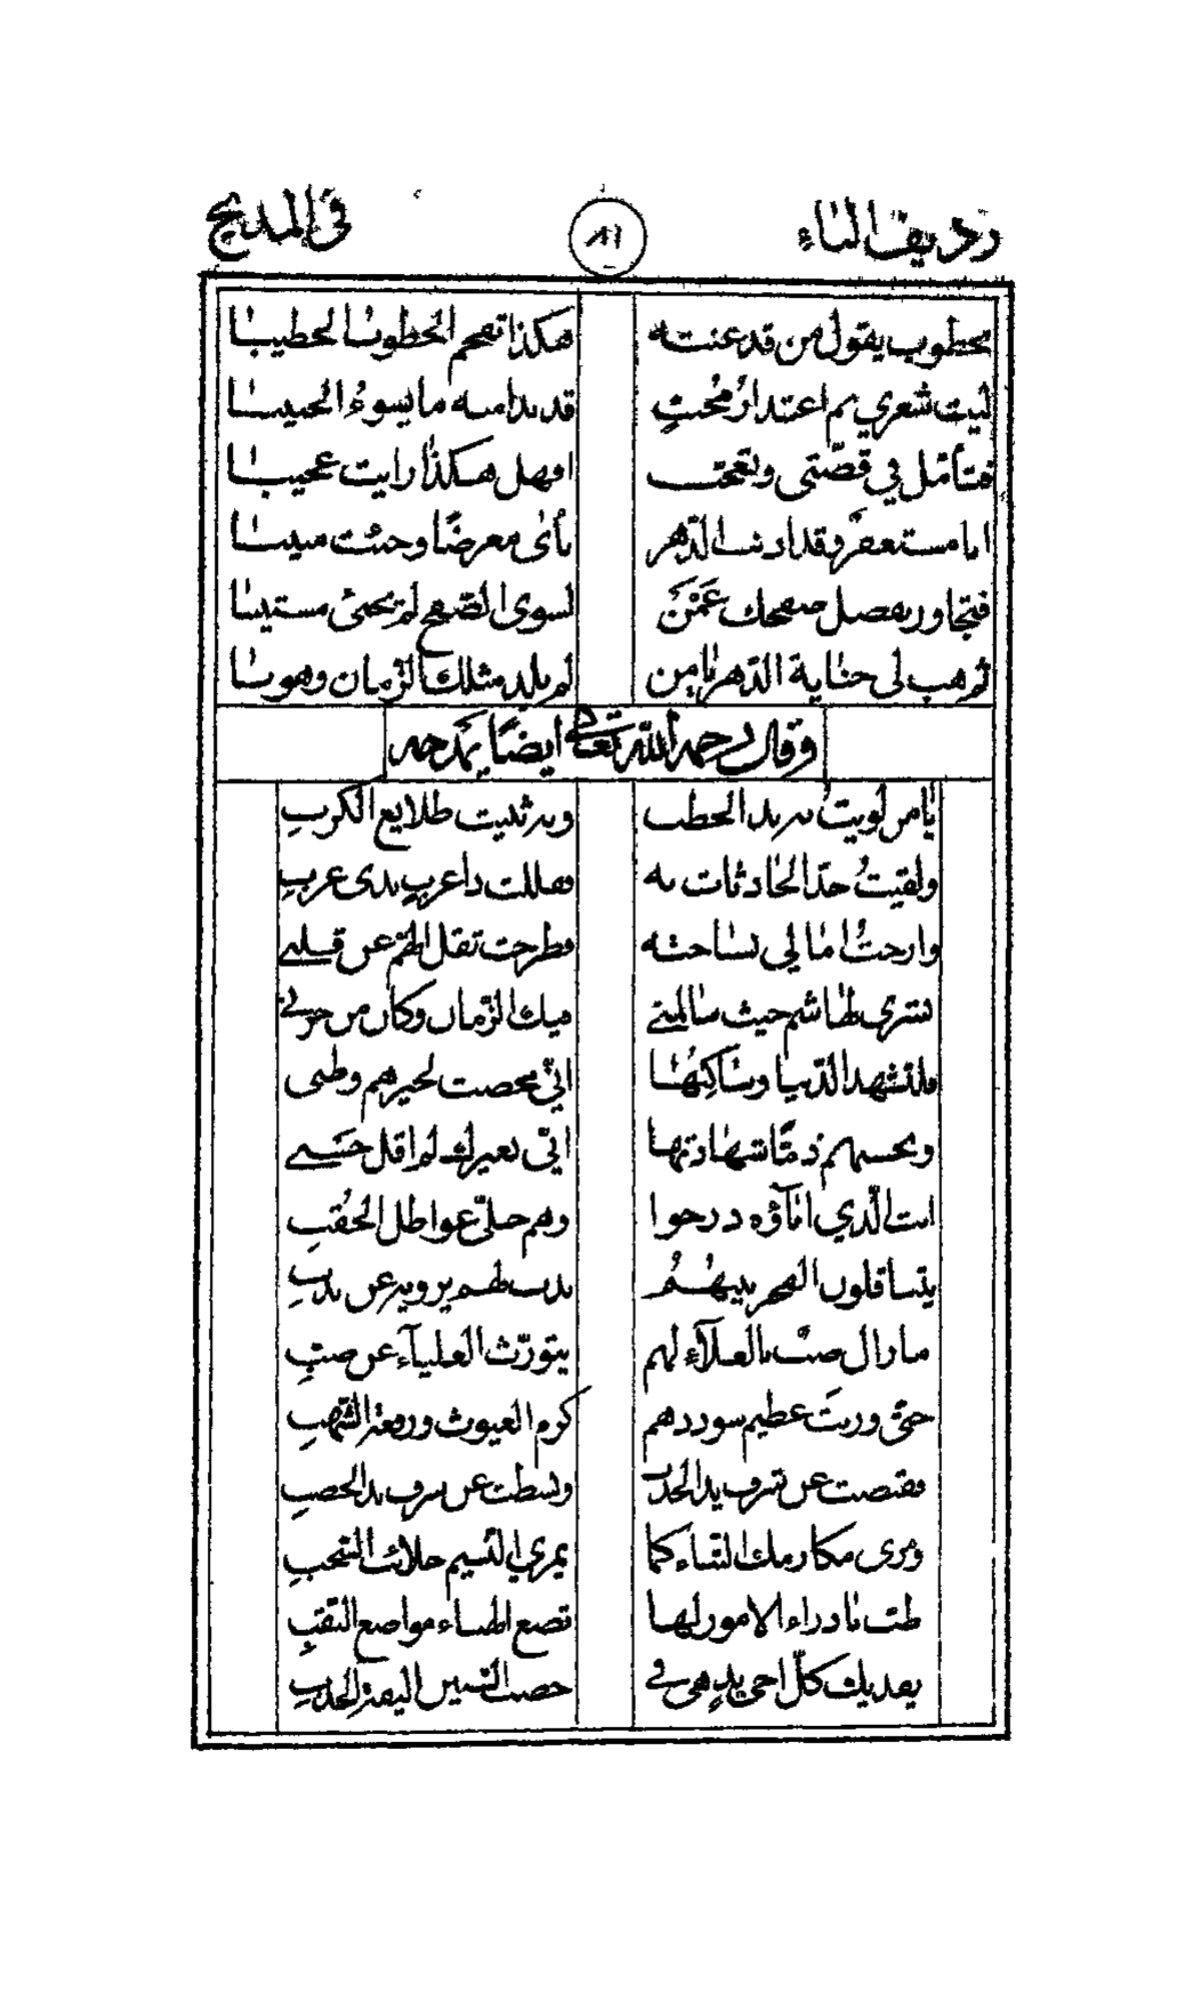 رديف الباء ٨٦ في المديح
بخطوب يقول من قد عنته هكذا تفحم الخطوب الخطيبا
ليت شعري بم اعتذار محبّ قد بدا منه ما يسوءُ الحبيبا
فتأمّل في قصّتي وتعجّب افهل هكذا رايت عجيبا
انا مستعفر وقد اذنب الدّهر نأى معرضًا وجئت منيبا
فتجاوز بفضل صفحك عَمّنَ لسوى الصّفح لم يجئ مستثيبا
ثم هب لي جناية الدّهر يا من لم يلد مثلك الزّمان وهوبا
وقال رحمه الله تعالى ايضًا يمدحه
يا من لويت به يد الخطب وبه ثنيت طلايع الكربِ
ولقيتُ حدّ الحادثات به فقللت ذا غربٍ بذي غربِ
وارحتُ امالي بساحته وطرحت ثقل الهمّ عن قلبي
فترى بها شم حيث سالمني فيك الزّمان وكان من حربي
فلتشهد الدّنيا وساكنها انّي محضت لخيرهم وطبي
وبحسبهم ذمّا شهادتها انّي بغيرك لم اقل حسبي
انت الّذي اباؤه درجوا وهم حليّ عواطل الحُقبِ
يتساقلون الفخر بينهُمُ ندب لهم يرويه عن ندبِ
ما زال صبّ بالعلاء لهم يتورّث العلياء عن صبّ
حتى ورثت عظيم سوددهم كرم الغيوث ورفعة الشّهبِ
فقبضت عن ترف يد الجدب وبسطت عن سرف يد الخصبِ
ومرى مكارمك الثناء كما يمري النّسيم حلائب السّحبِ
طبّ بادواء الامور لها تضع الهناء مواضع النّقبِ
يفديك كلّ اخي يدٍ هي في خصب السّنين اليفة الجدبِ